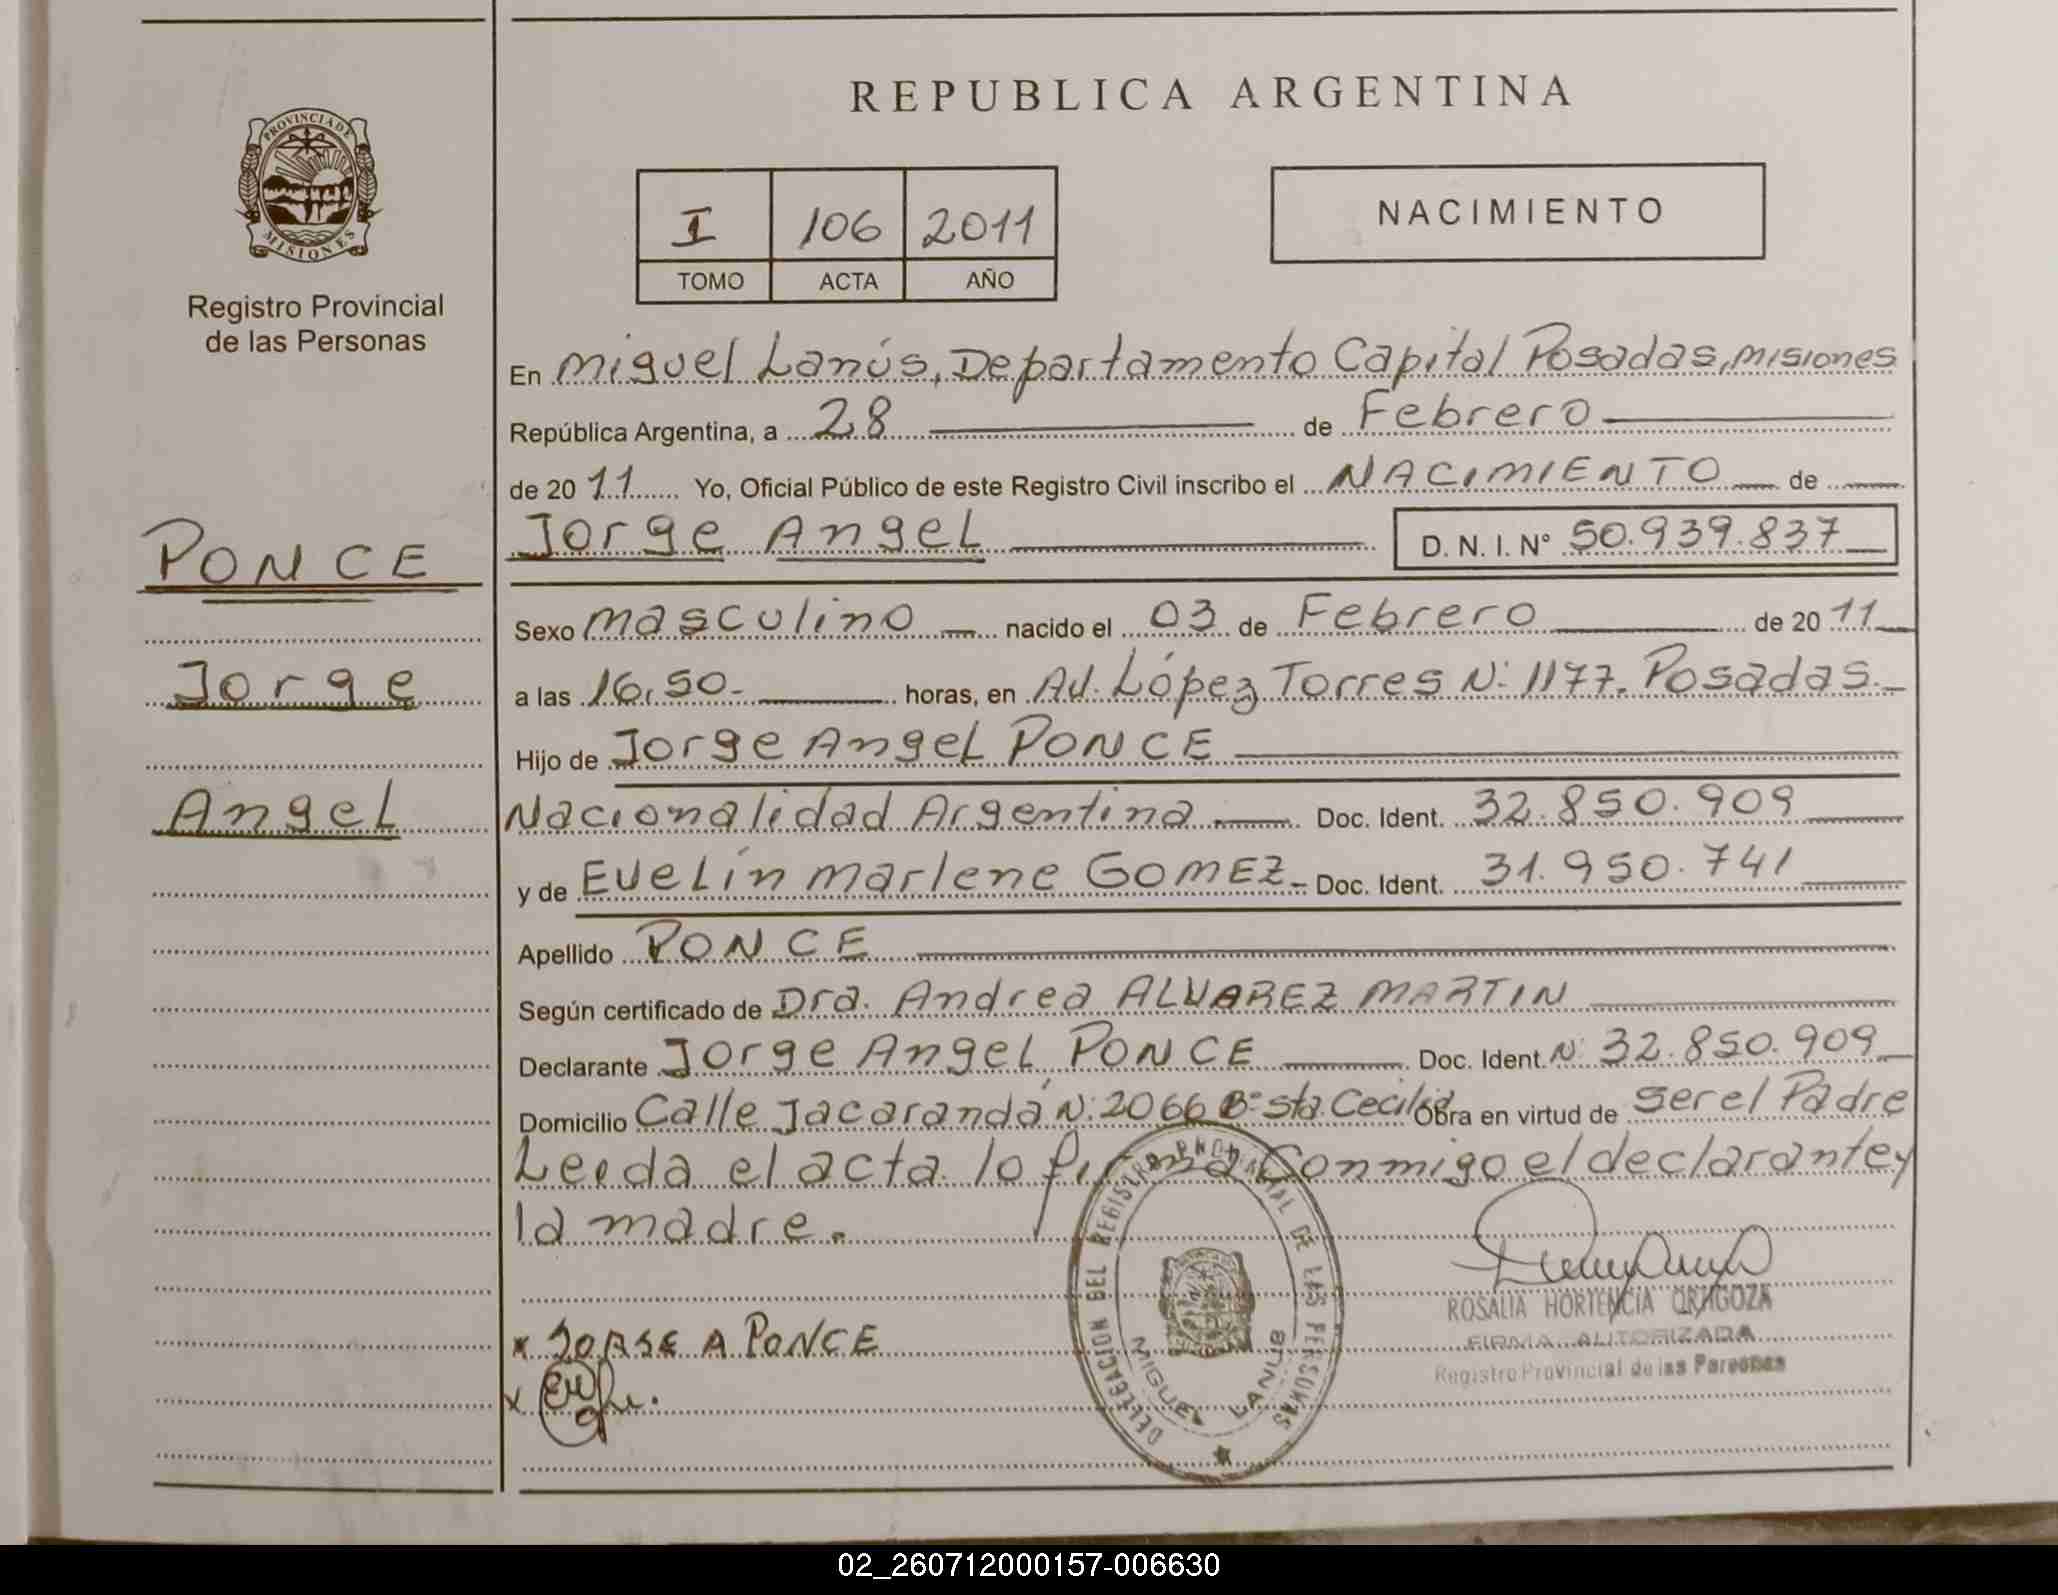 REPUBLICA ARGENTINA
PROVINCIA DE
MISIONES
Registro Provincial
de las Personas
I 106 2011
TOMO ACTA AÑO
NACIMIENTO
En Miguel Lanús, Departamento Capital Posadas, Misiones
República Argentina, a 28 de Febrero
de 2011 Yo, Oficial Público de este Registro Civil inscribo el NACIMIENTO de
Jorge Angel D. N. I. N° 50.939.837
PONCE
Jorge
Angel
Sexo masculino nacido el 03 de Febrero de 2011
a las 16,50.- horas, en Av. López Torres N: 1177. Posadas.-
Hijo de Jorge Angel PONCE
Nacionalidad Argentina Doc. Ident. 32.850.909
y de Evelin Marlene GOMEZ.- Doc. Ident. 31.950.741
Apellido PONCE
Según certificado de Dra. Andrea ALVAREZ MARTIN
Declarante Jorge Angel PONCE Doc. Ident. N: 32.850.909
Domicilio Calle Jacarandá N: 2066 B° Sta. Cecilia Obra en virtud de ser el Padre
Leida el acta lo firma conmigo el declarante y
la madre.
x JORGE A PONCE
x
DELEGACION DEL REGISTRO PROVINCIAL DE LAS PERSONAS
MIGUEL LANUS
ROSALIA HORTENCIA
FIRMA AUTORIZADA
Registro Provincial de las Personas
02_260712000157-006630